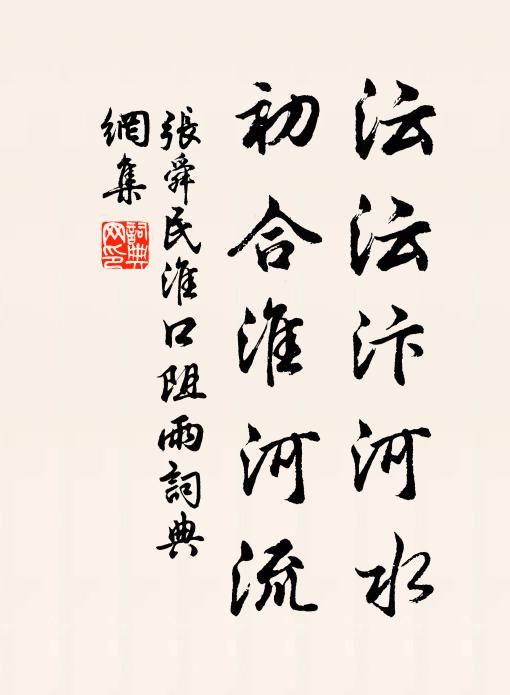 沄沄汴河水
初合淮河流
張舜民淮口阻雨詞典
網集
詞典
网印